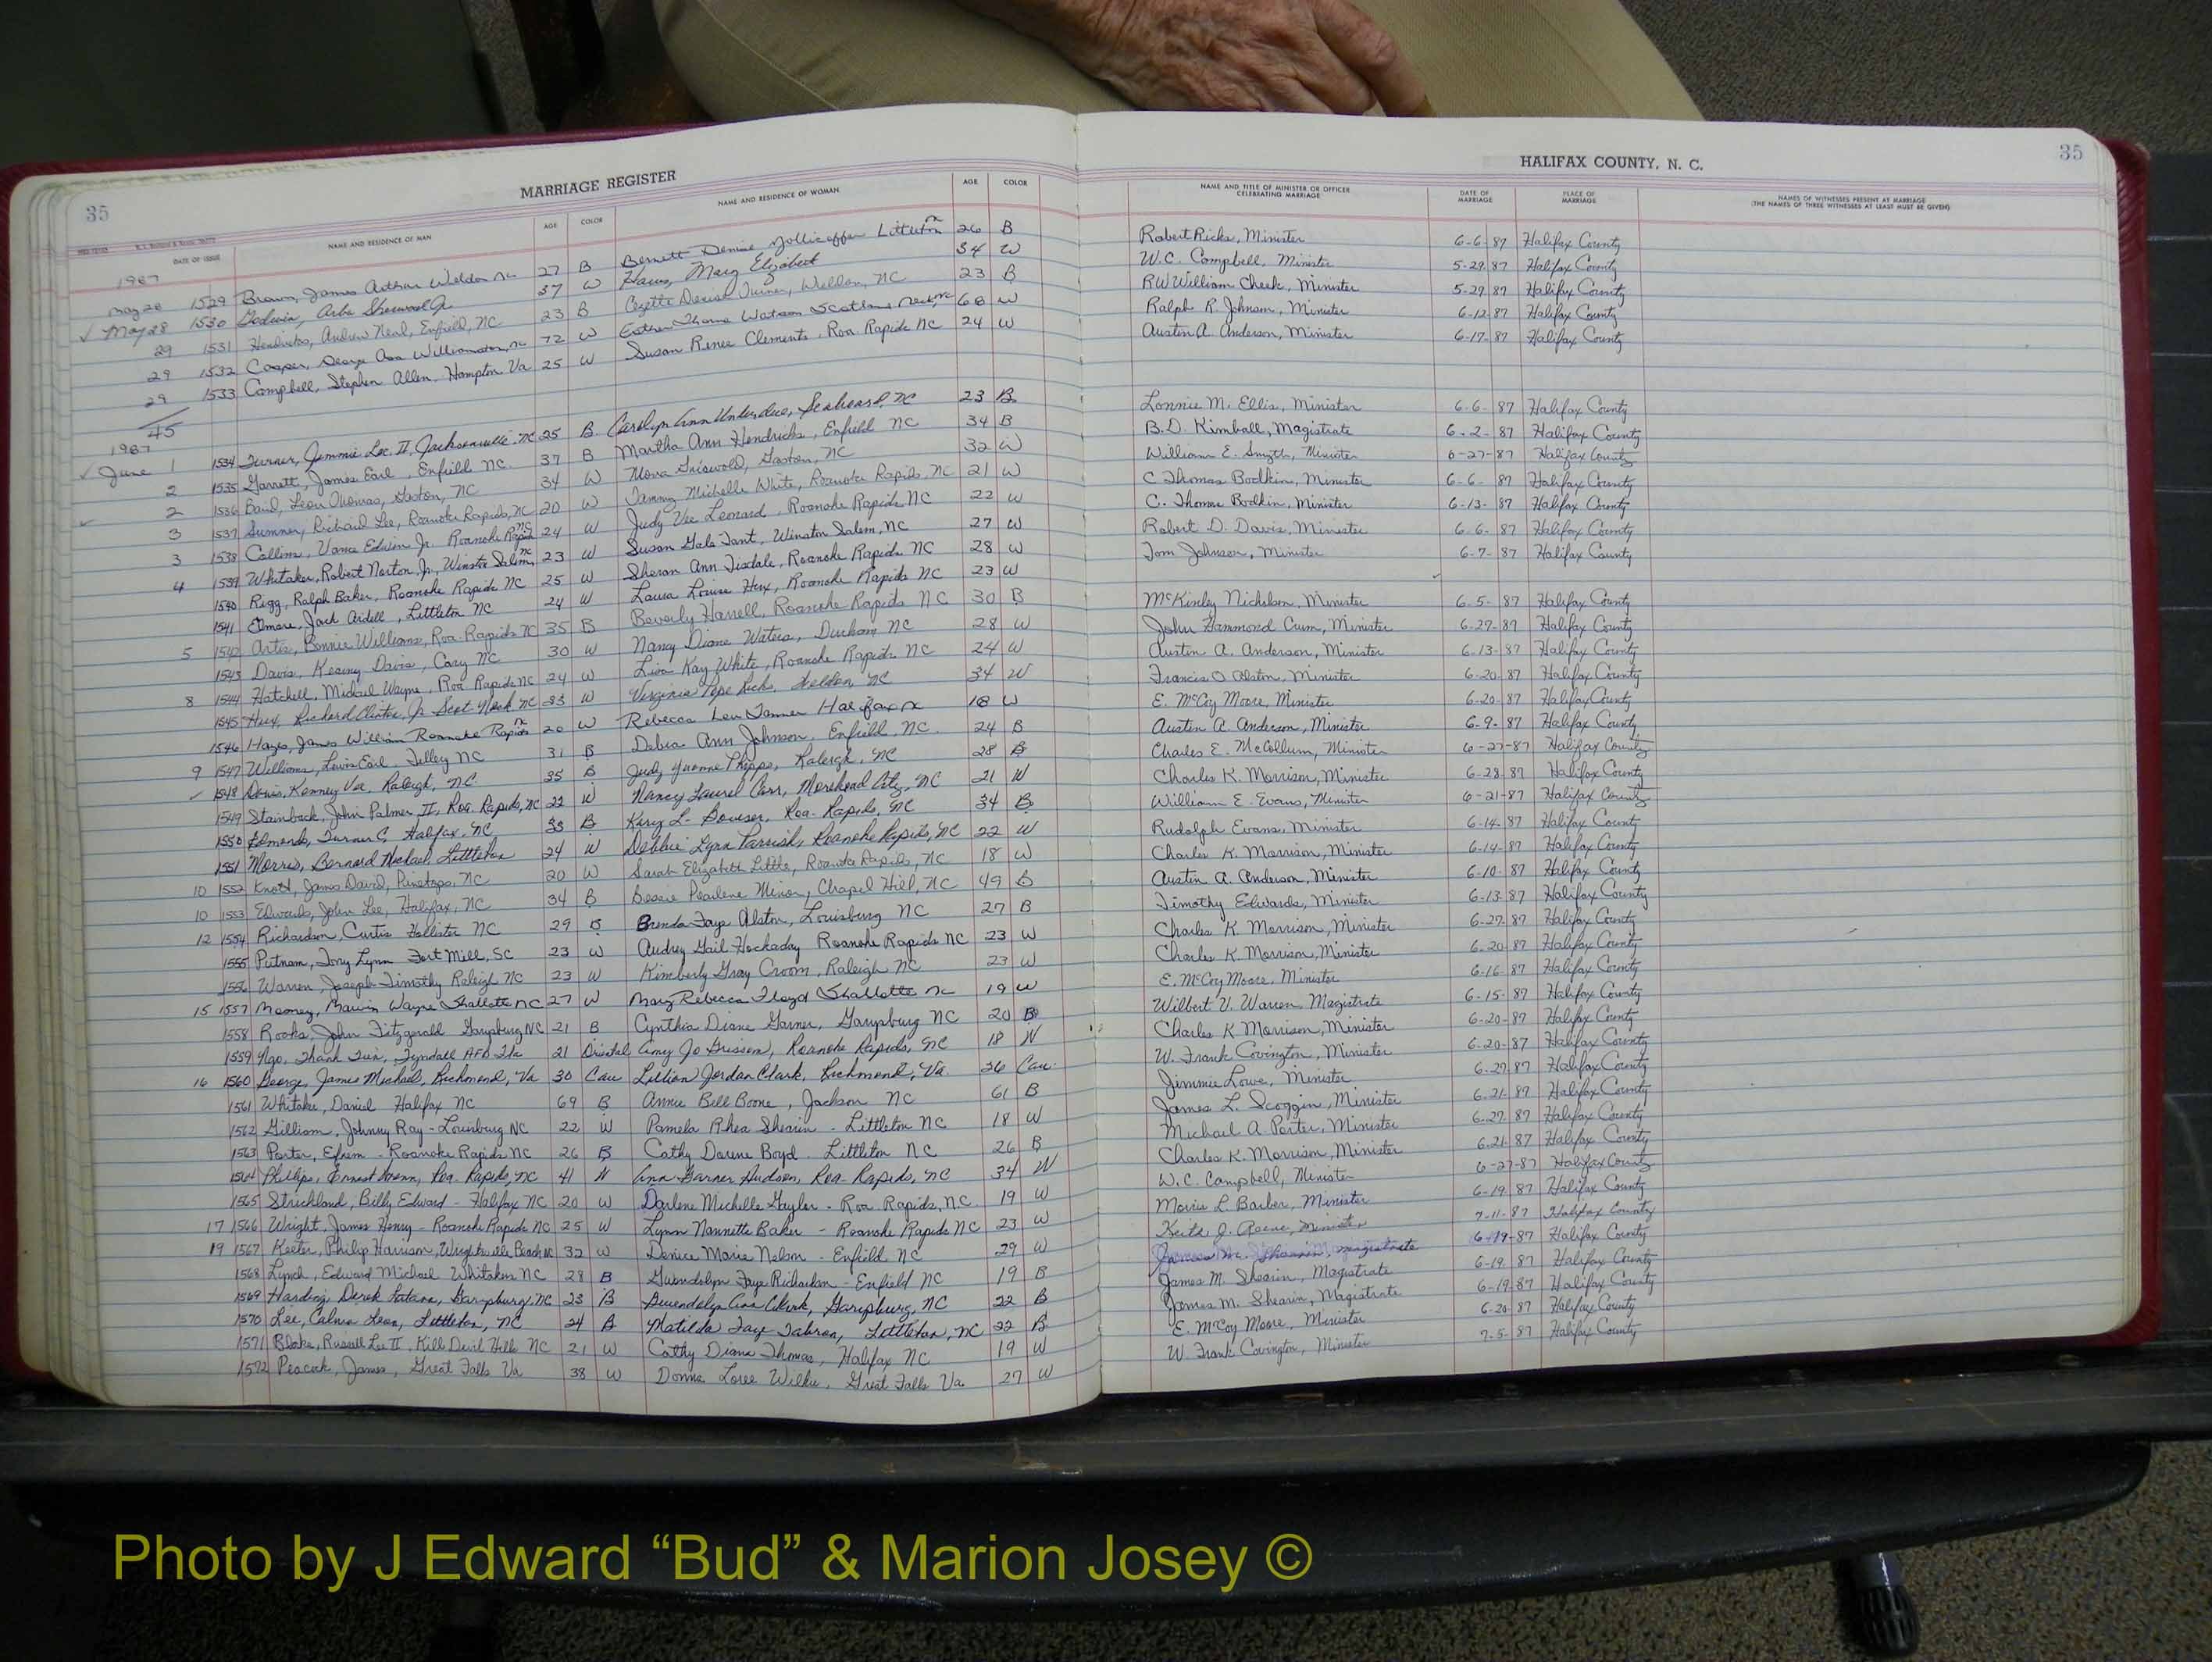 35 MARRIAGE REGISTER HALIFAX COUNTY, N. C. 35
DATE OF ISSUE NAME AND RESIDENCE OF MAN AGE COLOR NAME AND RESIDENCE OF WOMAN AGE COLOR NAME AND TITLE OF MINISTER OR OFFICER CELEBRATING MARRIAGE DATE OF MARRIAGE PLACE OF MARRIAGE NAMES OF WITNESSES PRESENT AT MARRIAGE (THE NAMES OF THREE WITNESSES AT LEAST MUST BE GIVEN)
1987
May 28 1529 Brown, James Arthur Weldon NC 27 B Bernett Denise Yollicoffer Littleton NC 26 B Robert Ricks, Minister 6-6-87 Halifax County
✓ May 28 1530 Godwin, Arba Sherwood Jr. 37 W Mary Elizabeth 34 W W.C. Campbell, Minister 5-29-87 Halifax County
29 1531 Andrew Neal, Enfield, NC 23 B Cozette Denise Turner, Weldon, NC 23 B RW William Cheek, Minister 5-29-87 Halifax County
29 1532 Cooper, George Asa Williamston, NC 72 W Esther Thorne Watson Scotland Neck NC 68 W Ralph R. Johnson, Minister 6-12-87 Halifax County
29 1533 Campbell, Stephen Allen, Hampton Va 25 W Susan Renee Clements, Roa Rapids NC 24 W Austin A. Anderson, Minister 6-17-87 Halifax County
45
1987
✓ June 1 1534 Turner, Jimmie Lee II, Jacksonville, NC 25 B Carolyn Ann Underdue, Seaboard, NC 23 B Lonnie M. Ellis, Minister 6-6-87 Halifax County
2 1535 Garrett, James Earl, Enfield NC 37 B Martha Ann Hendricks, Enfield NC 34 B B.D. Kimball, Magistrate 6-2-87 Halifax County
✓ 2 1536 Baird, Leon Thomas, Gaston, NC 34 W Nova Griswold, Gaston, NC 32 W William E. Smyth, Minister 6-27-87 Halifax County
3 1537 Sumner, Richard Lee, Roanoke Rapids, NC 20 W Tammy Michelle White, Roanoke Rapids, NC 21 W C. Thomas Bodkin, Minister 6-6-87 Halifax County
3 1538 Collins, Vance Edwin Jr. Roanoke Rapids NC 24 W Judy Vee Leonard, Roanoke Rapids NC 22 W C. Thomas Bodkin, Minister 6-13-87 Halifax County
4 1539 Whitaker, Robert Norton, Jr., Winston Salem, NC 23 W Susan Gale Tant, Winston Salem, NC 27 W Robert D. Davis, Minister 6-6-87 Halifax County
1540 Rigg, Ralph Baker, Roanoke Rapids NC 25 W Sharon Ann Tisdale, Roanoke Rapids NC 28 W Tom Johnson, Minister 6-7-87 Halifax County
1541 Elmore, Jack Ardell, Littleton NC 24 W Laura Louise Hux, Roanoke Rapids NC 23 W
5 1542 Artis, Bonnie Williams, Roa Rapids NC 35 B Beverly Harrell, Roanoke Rapids NC 30 B McKinley Nicholson, Minister 6-5-87 Halifax County
1543 Davis, Keciny Davis, Cary NC 30 W Nancy Diane Waters, Durham NC 28 W John Hammond Crum, Minister 6-27-87 Halifax County
8 1544 Hatchell, Michael Wayne, Roa Rapids NC 24 W Lisa Kay White, Roanoke Rapids NC 24 W Austin A. Anderson, Minister 6-13-87 Halifax County
1545 Hux, Richard Clinton, Jr. Scot Neck NC 33 W Virginia Pope Ricks, Weldon NC 34 W Francis O Alston, Minister 6-20-87 Halifax County
1546 Hayes, James William Roanoke Rapids NC 20 W Rebecca Lou Tanner Halifax NC 18 W E. McCoy Moore, Minister 6-20-87 Halifax County
9 1547 Williams, Lewis Earl, Tillery NC 31 B Debra Ann Johnson, Enfield, NC 24 B Austin A. Anderson, Minister 6-9-87 Halifax County
✓ 1548 Davis, Kenney Vee, Raleigh, NC 25 B Judy Yvonne Phipps, Raleigh, NC 28 B Charles E. McCollum, Minister 6-27-87 Halifax County
1549 Stainback, John Palmer II, Roa. Rapids, NC 22 W Nancy Laurel Carr, Morehead City, NC 21 W Charles K. Morrison, Minister 6-28-87 Halifax County
1550 Edmonds, Turner C, Halifax, NC 33 B Kery L. Bowser, Roa. Rapids, NC 34 B William E. Evans, Minister 6-21-87 Halifax County
1551 Morris, Bernard Michael, Littleton 24 W Debbie Lynn Parrish, Roanoke Rapids, NC 22 W Rudolph Evans, Minister 6-14-87 Halifax County
10 1552 Knott, James David, Pinetops, NC 20 W Sarah Elizabeth Little, Roanoke Rapids, NC 18 W Charles K. Morrison, Minister 6-14-87 Halifax County
10 1553 Edwards, John Lee, Halifax, NC 34 B Bessie Pearlene Minor, Chapel Hill, NC 49 B Austin A. Anderson, Minister 6-10-87 Halifax County
12 1554 Richardson, Curtis Hollister NC 29 B Brenda Faye Alston, Louisburg NC 27 B Timothy Edwards, Minister 6-13-87 Halifax County
1555 Putnam, Tony Lynn Fort Mill, SC 23 W Audrey Gail Hockaday Roanoke Rapids NC 23 W Charles K. Morrison, Minister 6-27-87 Halifax County
1556 Warren, Joseph Timothy Raleigh NC 23 W Kimberly Gray Croom, Raleigh NC 23 W Charles K. Morrison, Minister 6-20-87 Halifax County
15 1557 Mooney, Marvin Wayne Shallotte NC 27 W Mary Rebecca Floyd Shallotte NC 19 W E. McCoy Moore, Minister 6-16-87 Halifax County
1558 Rooks, John Fitzgerald Garysburg NC 21 B Cynthia Diane Garner, Garysburg NC 20 B Wilbert V. Warren, Magistrate 6-15-87 Halifax County
1559 Ngo, Thanh Tien, Tyndall AFB Fla 21 Oriental Amy Jo Grissom, Roanoke Rapids, NC 18 W Charles K Morrison, Minister 6-20-87 Halifax County
16 1560 George, James Michael, Richmond, Va 30 Cau Lillian Jordan Clark, Richmond, Va. 26 Cau. W. Frank Covington, Minister 6-20-87 Halifax County
1561 Whitaker, Daniel Halifax NC 69 B Annie Bell Boone, Jackson NC 61 B Jimmie Lowe, Minister 6-27-87 Halifax County
1562 Gilliam, Johnny Ray - Louisburg NC 22 W Pamela Rhea Shearin - Littleton NC 18 W James L. Scoggin, Minister 6-21-87 Halifax County
1563 Porter, Efrem - Roanoke Rapids NC 26 B Cathy Darene Boyd - Littleton NC 26 B Michael A. Porter, Minister 6-27-87 Halifax County
1564 Phillips, Ernest Roa. Rapids, NC 41 W Ann Garner Hudson, Roa. Rapids, NC 34 W Charles K. Morrison, Minister 6-21-87 Halifax County
1565 Strickland, Billy Edward - Halifax NC 20 W Darlene Michelle Gaylor - Roa. Rapids, N.C. 19 W W.C. Campbell, Minister 6-27-87 Halifax County
17 1566 Wright, James Henry - Roanoke Rapids NC 25 W Lynn Nannette Baker - Roanoke Rapids NC 23 W Morris L. Barber, Minister 6-19-87 Halifax County
19 1567 Keeter, Philip Harrison, Wrightsville Beach NC 32 W Denice Marie Nelson - Enfield NC 29 W Keith J. Minister 7-11-87 Halifax County
James M. Shearin, Magistrate 6-19-87 Halifax County
1568 Lynch, Edward Michael Whitakers NC 28 B Gwendolyn Faye Richardson - Enfield NC 19 B James M. Shearin, Magistrate 6-19-87 Halifax County
1569 Harding, Derek Garysburg NC 23 B Gwendolyn Ann Clark, Garysburg, NC 22 B James M. Shearin, Magistrate 6-19-87 Halifax County
1570 Lee, Calvin Leon, Littleton, NC 24 B Matilda Faye Tabron, Littleton, NC 22 B E. McCoy Moore, Minister 6-20-87 Halifax County
1571 Blake, Russell Lee II, Kill Devil Hills NC 21 W Cathy Diane Thomas, Halifax NC 19 W W. Frank Covington, Minister 7-5-87 Halifax County
1572 Peacock, James, Great Falls Va 38 W Donna Loree Wilkie, Great Falls Va 27 W
Photo by J Edward “Bud” & Marion Josey ©